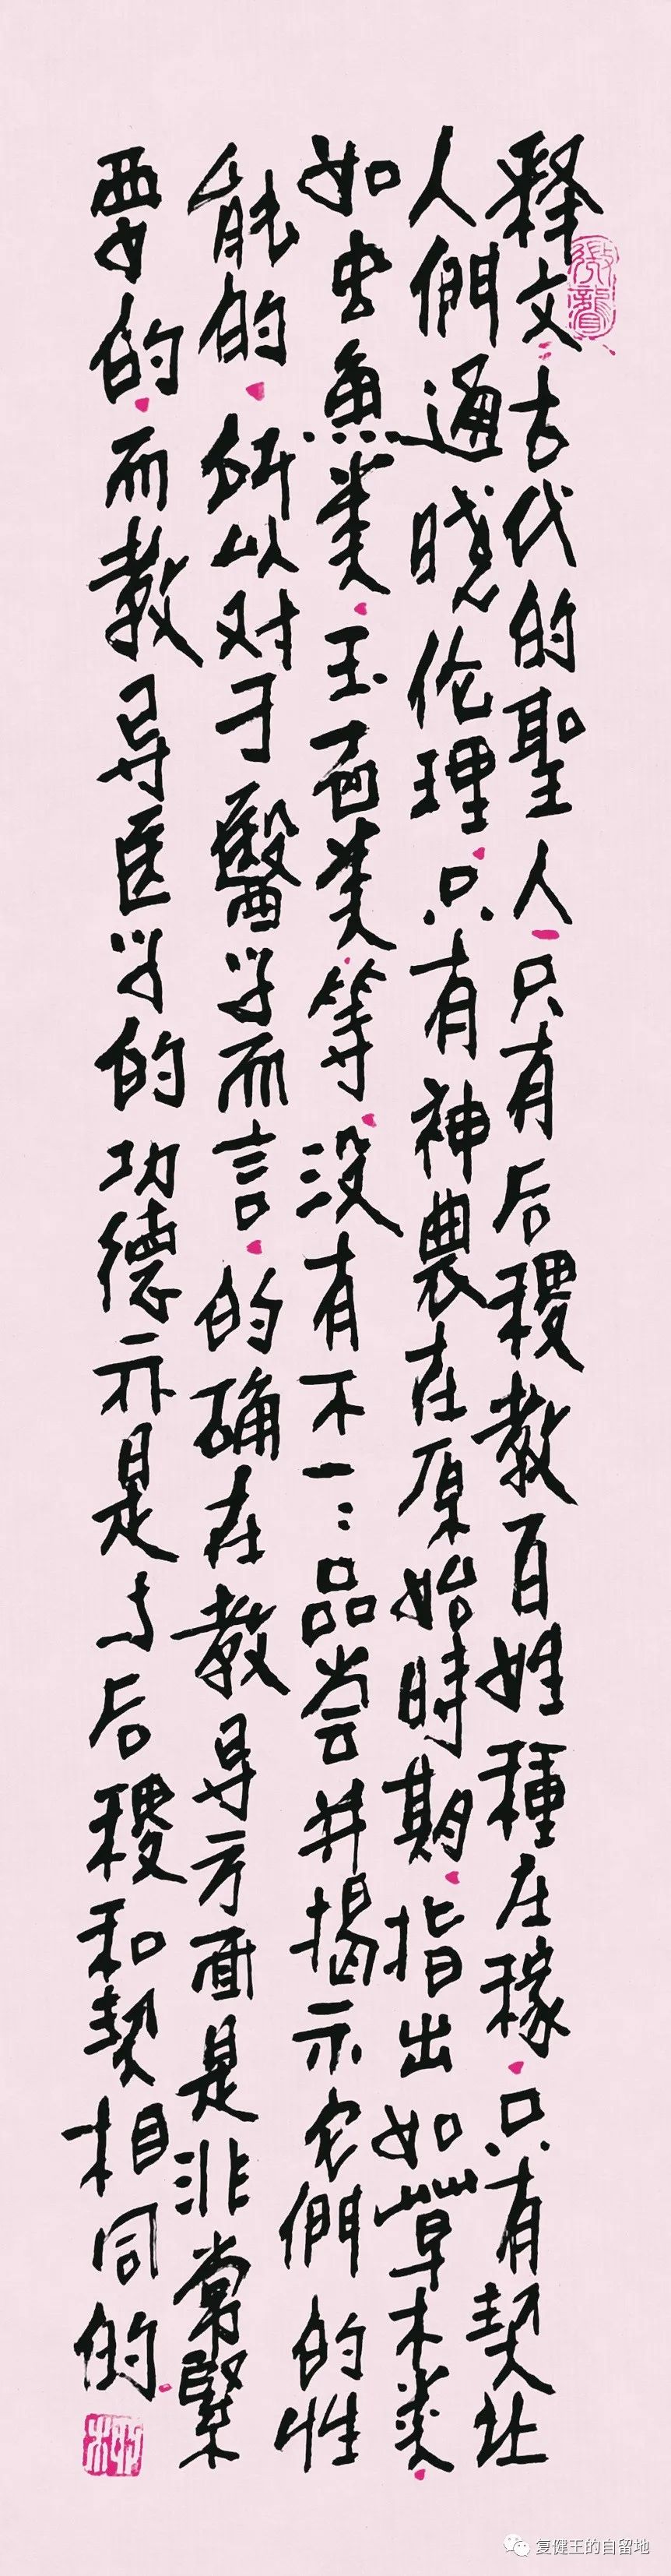 释文:古代的聖人只有后稷教百姓種庄稼.只有契让
人們通曉伦理.只有神農在原始時期.指出如草木类.
如虫魚类.玉石类.等.没有不一一品尝并揭示它們的性
能的.所以对于醫学而言.的确在教导方面是非常緊
要的.而教导医学的功德亦是与后稷和契相同的.
复健王的自留地